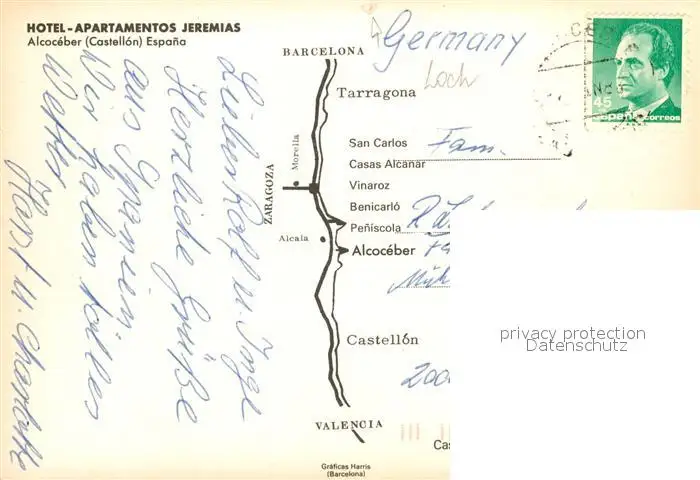 HOTEL-APARTAMENTOS JEREMIAS
Alcocéber (Castellón) España
Lieber Rolf u. Inge
Herzliche Grüße
aus Spanien
Wir haben tolles
Wetter
Horst u. Charlotte
BARCELONA
Tarragona
San Carlos
Casas Alcanar
Morella
Vinaroz
ZARAGOZA
Benicarló
Peñíscola
Alcalá
Alcocéber
Castellón
VALENCIA
Gráficas Harris
(Barcelona)
Germany
Loch
Fam.
R.
Müh
200
Cas
45
España correos
privacy protection
Datenschutz